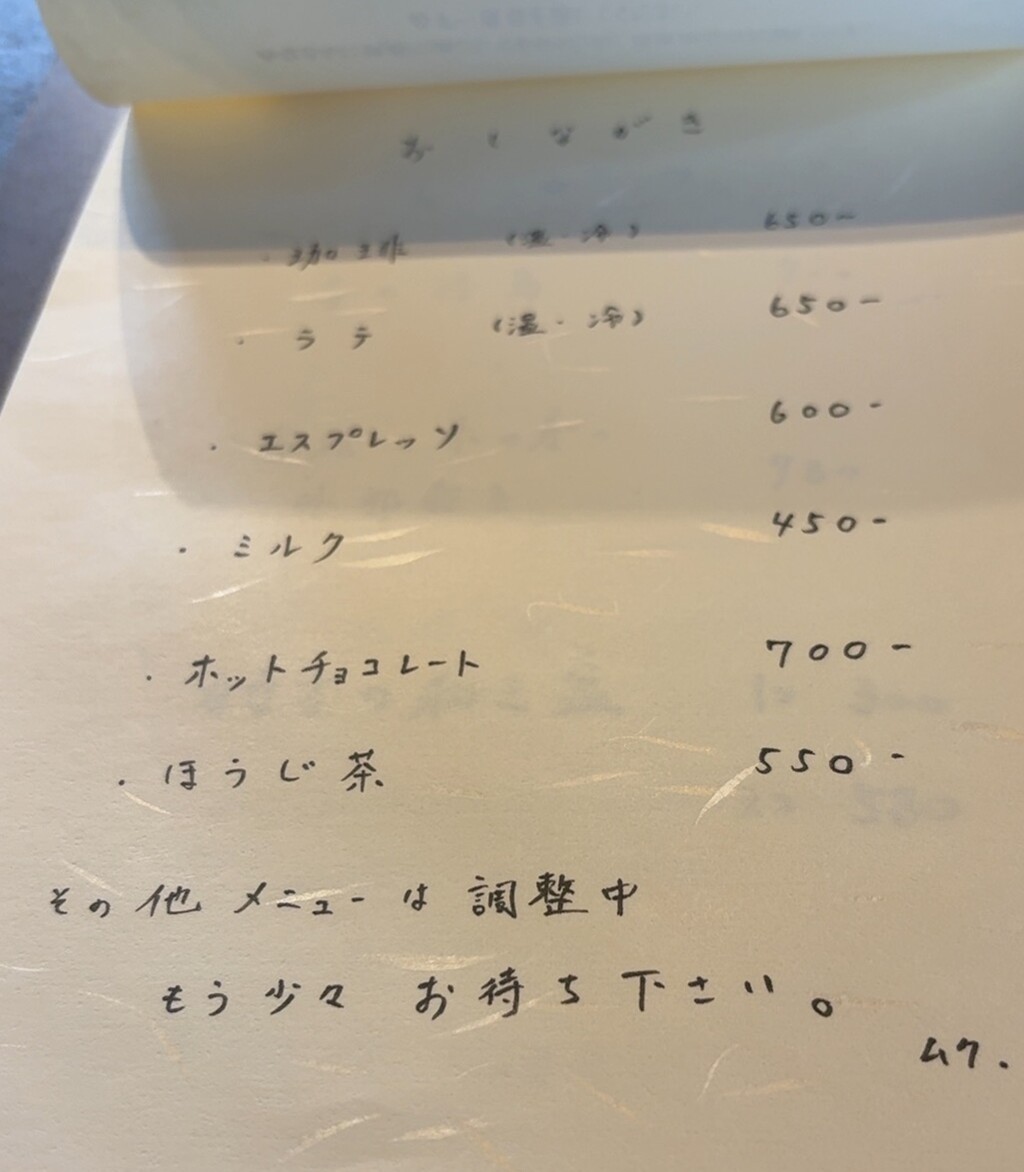 おしながき
・珈琲 (温・冷) 650-
・ラテ (温・冷) 650-
・エスプレッソ 600-
・ミルク 450-
・ホットチョコレート 700-
・ほうじ茶 550-
その他メニューは調整中
もう少々 お待ち下さい。
ムク.